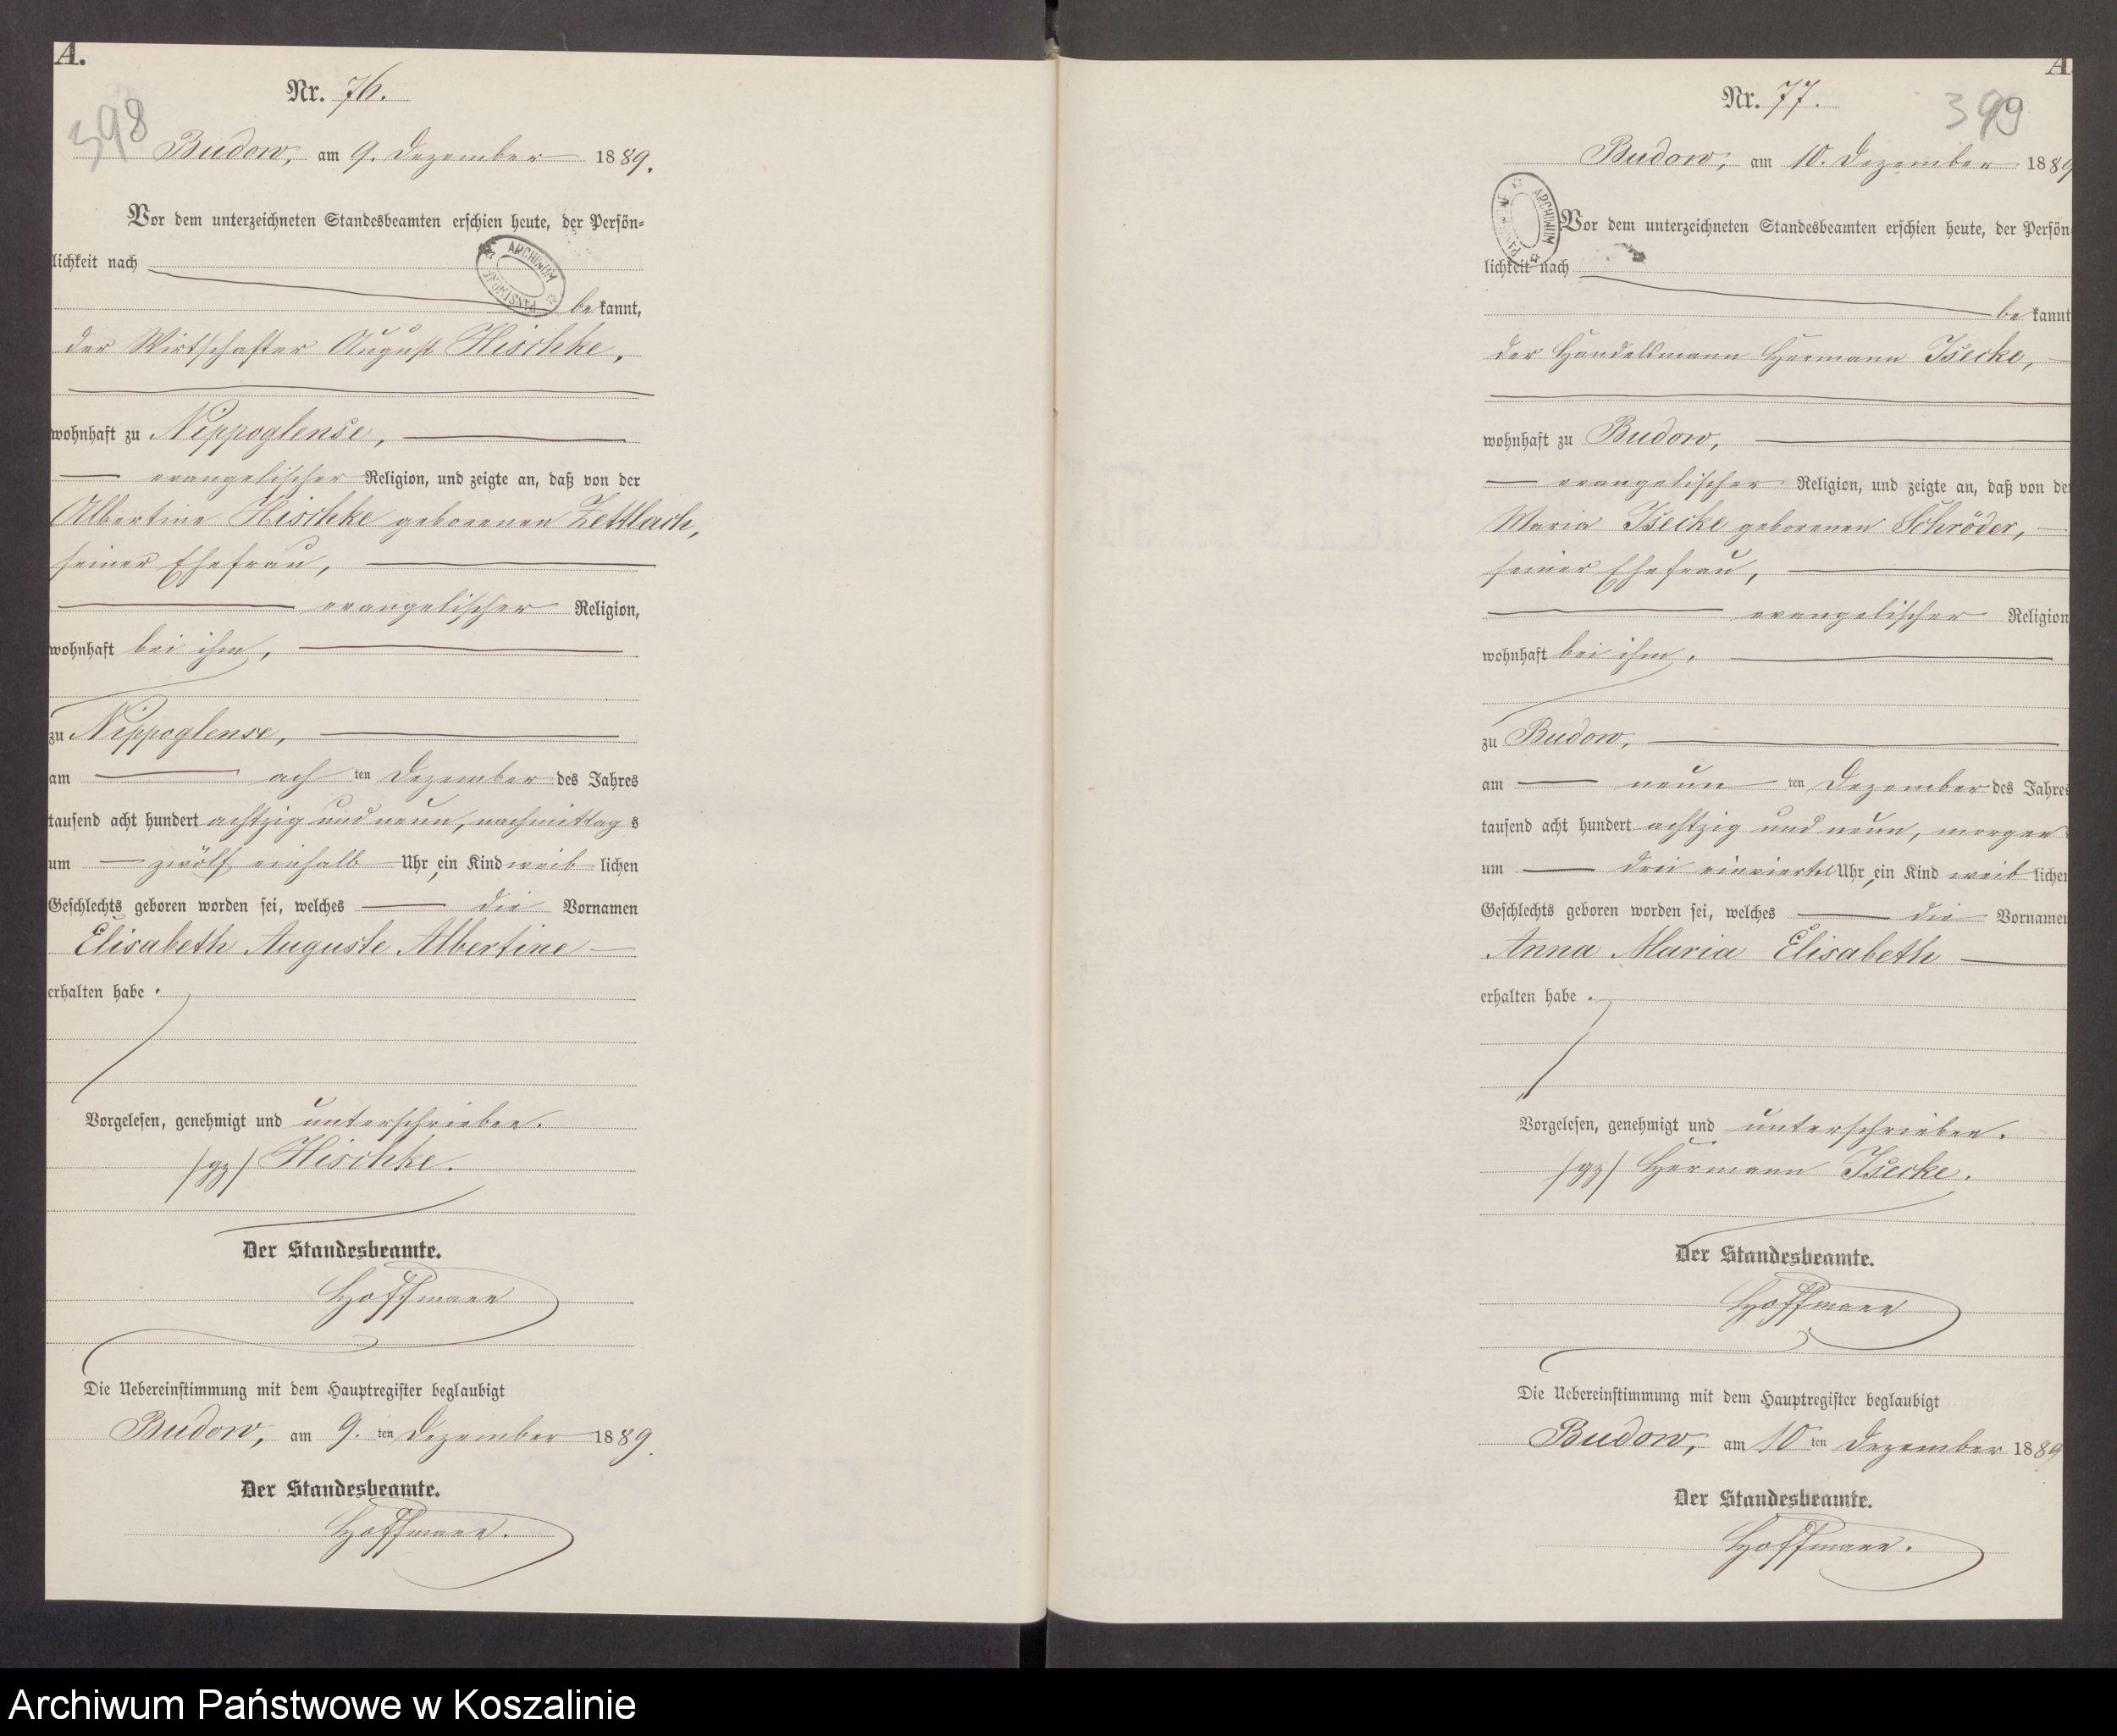 A.
398
Nr. 76.
Budow, am 9. Dezember 1889.
Vor dem unterzeichneten Standesbeamten erschien heute, der Persön=
lichkeit nach
bekannt,
der Wirtschafter August Hischke,
wohnhaft zu Nippoglense,
evangelischer Religion, und zeigte an, daß von der
Albertine Hischke geborenen Zettlach,
seiner Ehefrau,
evangelischer Religion,
wohnhaft bei ihm,
zu Nippoglense,
am achten Dezember des Jahres
tausend acht hundert achtzig und neun, nachmittags
um zwölf einhalb Uhr, ein Kind weiblichen
Geschlechts geboren worden sei, welches die Vornamen
Elisabeth Auguste Albertine
erhalten habe.
Vorgelesen, genehmigt und unterschrieben.
/gz/ Hischke.
Der Standesbeamte.
Hoffmann
Die Uebereinstimmung mit dem Hauptregister beglaubigt
Budow, am 9.ten Dezember 1889.
Der Standesbeamte.
Hoffmann.
ARCHIWUM PAŃSTWOWE
A
399
Nr. 77.
Budow, am 10. Dezember 1889
Vor dem unterzeichneten Standesbeamten erschien heute, der Persön
lichkeit nach
bekannt
der Handelsmann Hermann Isecke,
wohnhaft zu Budow,
evangelischer Religion, und zeigte an, daß von de
Maria Isecke geborenen Schröder,
seiner Ehefrau,
evangelischer Religion
wohnhaft bei ihm,
zu Budow,
am neunten Dezember des Jahres
tausend acht hundert achtzig und neun, morgen
um drei einviertel Uhr, ein Kind weibliche
Geschlechts geboren worden sei, welches die Vorname
Anna Maria Elisabeth
erhalten habe.
Vorgelesen, genehmigt und unterschrieben.
/gz/ Hermann Isecke.
Der Standesbeamte.
Hoffmann
Die Uebereinstimmung mit dem Hauptregister beglaubigt
Budow, am 10ten Dezember 1889
Der Standesbeamte.
Hoffmann.
ARCHIWUM PAŃSTWOWE
Archiwum Państwowe w Koszalinie